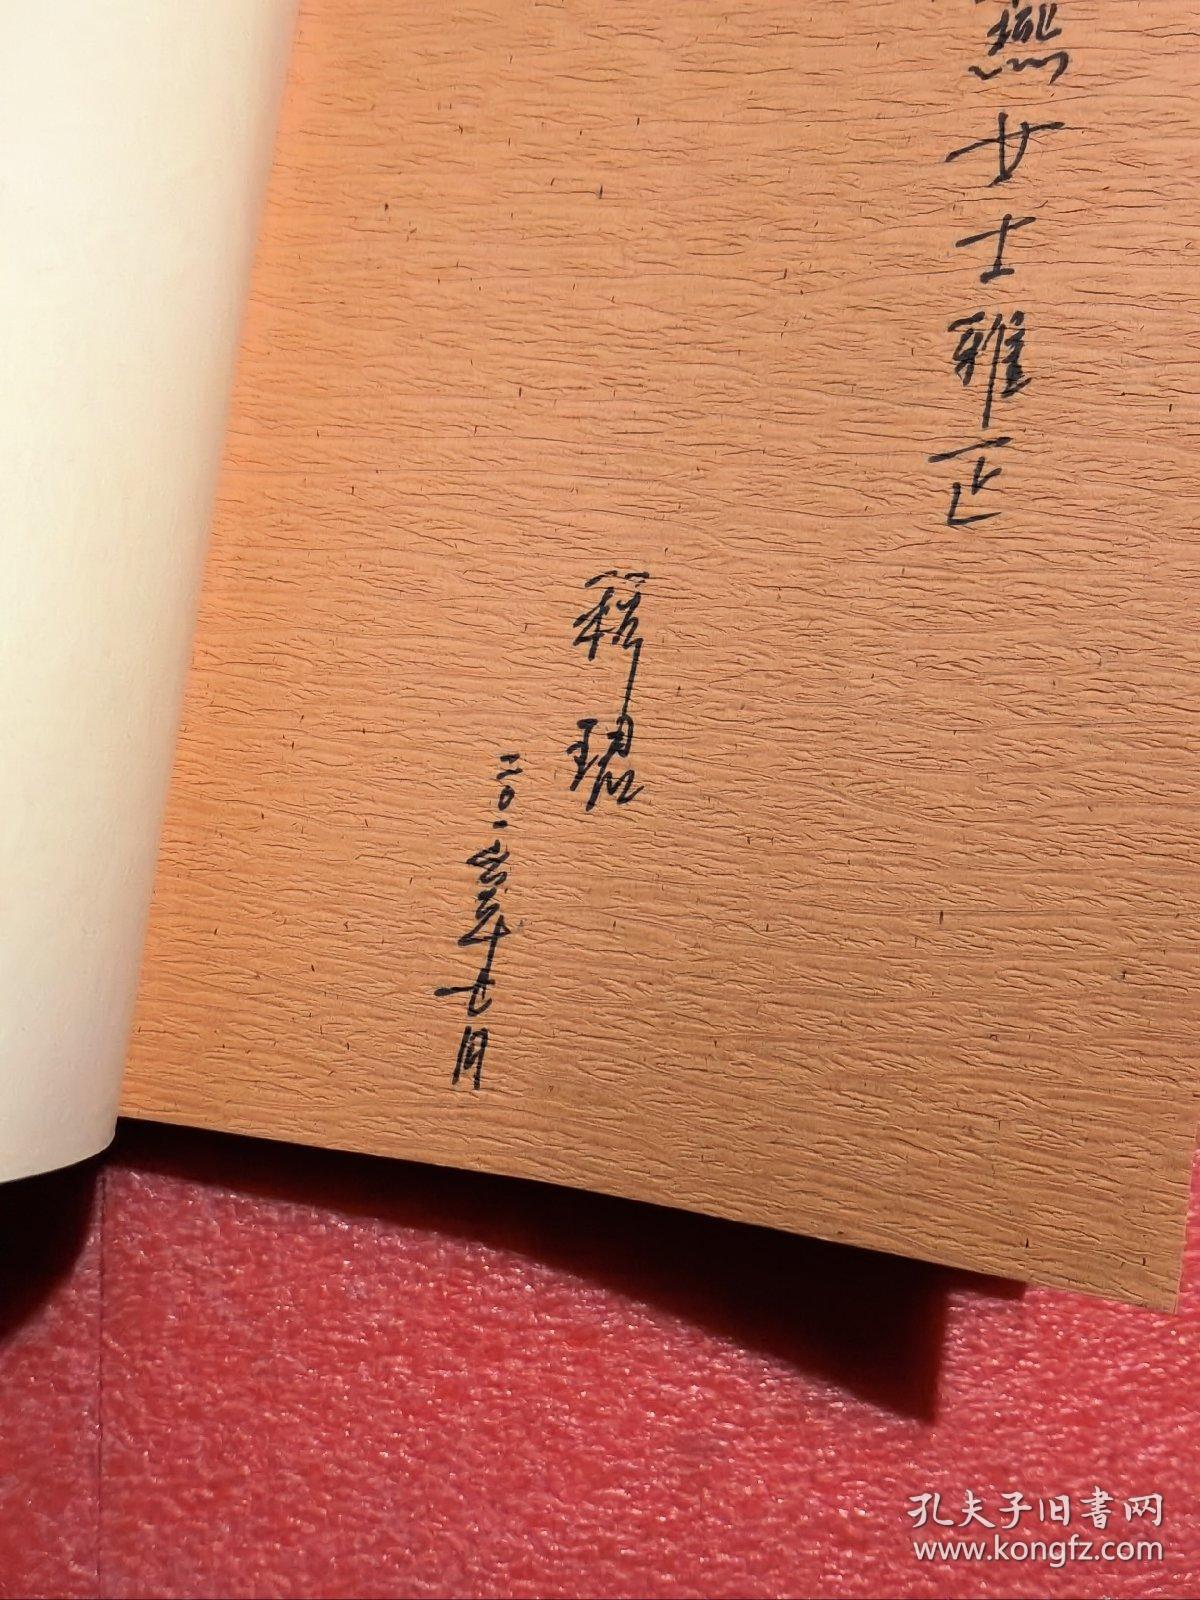 燕女士雅正
籍珺
二〇一六年七月
孔夫子旧書网
www.kongfz.com